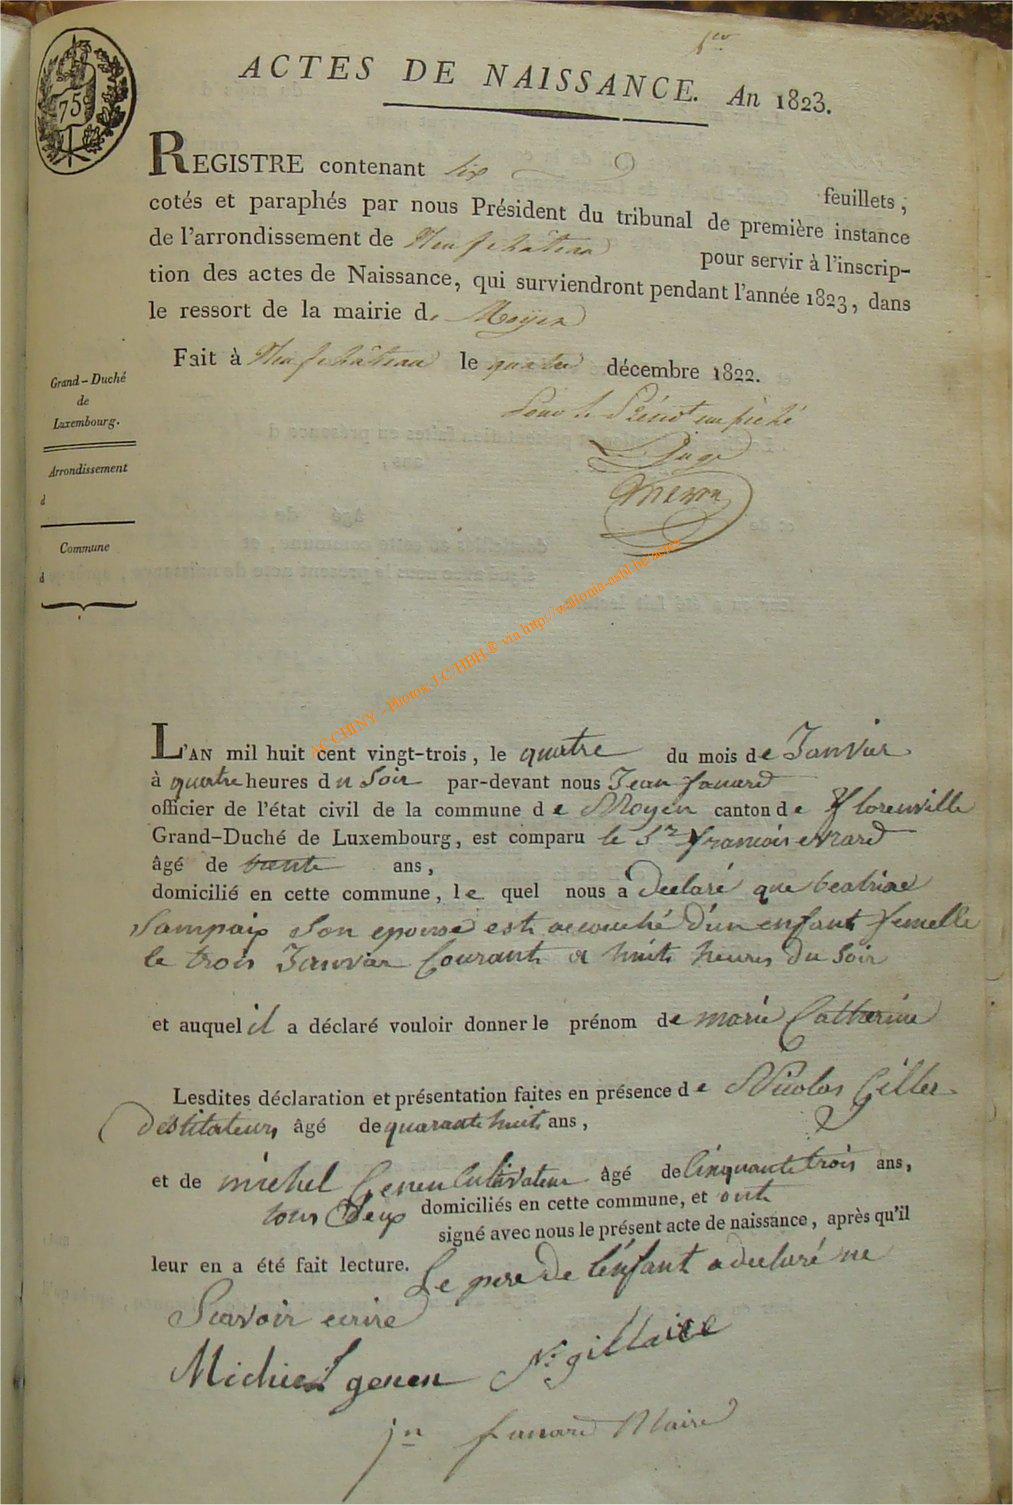 1er
75
ACTES DE NAISSANCE. An 1823.
REGISTRE contenant six feuillets,
cotés et paraphés par nous Président du tribunal de première instance
de l'arrondissement de Neufchâteau pour servir à l'inscrip-
tion des actes de Naissance, qui surviendront pendant l'année 1823, dans
le ressort de la mairie de Moyen
Fait à Neufchâteau le quatre décembre 1822.
Grand-Duché
de
Luxembourg.
Arrondissement
d
Commune
d
Pour le Présidt empêché
Le Juge
ACCHINY - Photos J.C HBH.© via http://wallonia-asbl.be
L'AN mil huit cent vingt-trois, le quatre du mois de Janvier
à quatre heures du Soir par-devant nous Jean fanard
officier de l'état civil de la commune de Moyen canton de florenville
Grand-Duché de Luxembourg, est comparu le Sr francois evrard
âgé de trente ans,
domicilié en cette commune, le quel nous a declaré que beatrice
Sampaix Son epouse est accouché d'un enfant femelle
le trois Janvier Courant a huit heures du Soir
et auquel il a déclaré vouloir donner le prénom de marie Catherine
Lesdites déclaration et présentation faites en présence de Nicolas Gillet
âgé de quarante huit ans,
et de michel Genen Cultivateur âgé de Cinquante trois ans,
tous deux domiciliés en cette commune, et ont
signé avec nous le présent acte de naissance, après qu'il
leur en a été fait lecture. Le pere de l'enfant a declaré ne
Savoir ecrire
Michiel genen N. gillaice
jn fanard Maire